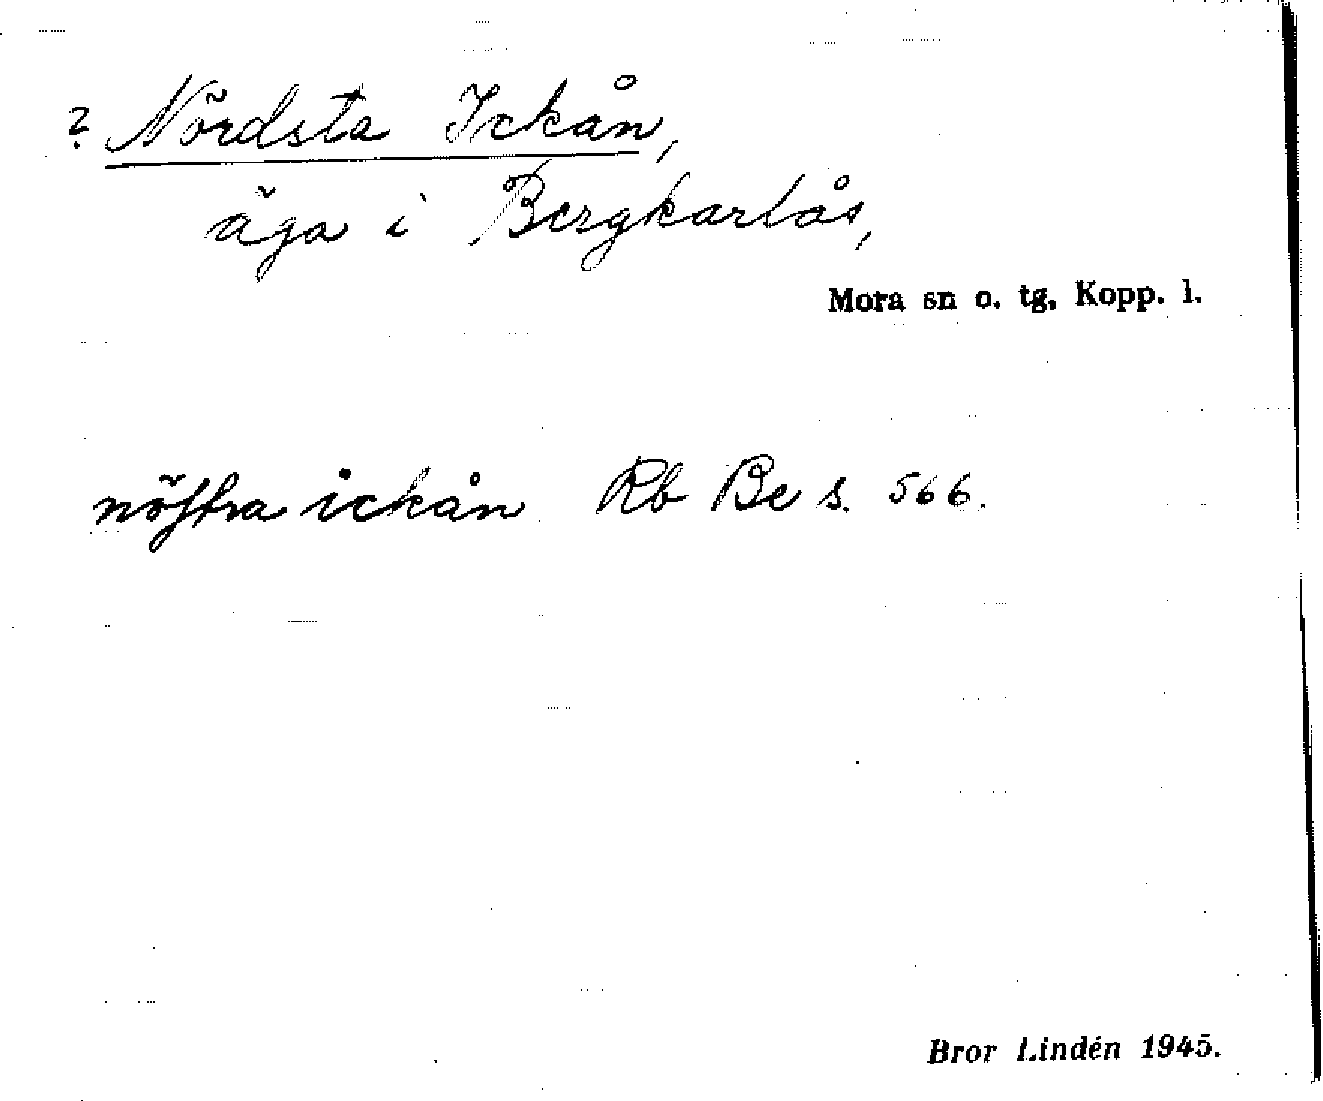 ? Nördsta Ickån,
äga i Bergkarlås,
Mora sn o. tg. Kopp. l.
nöſtra ickån Rb Be s. 566.
Bror Lindén 1945.